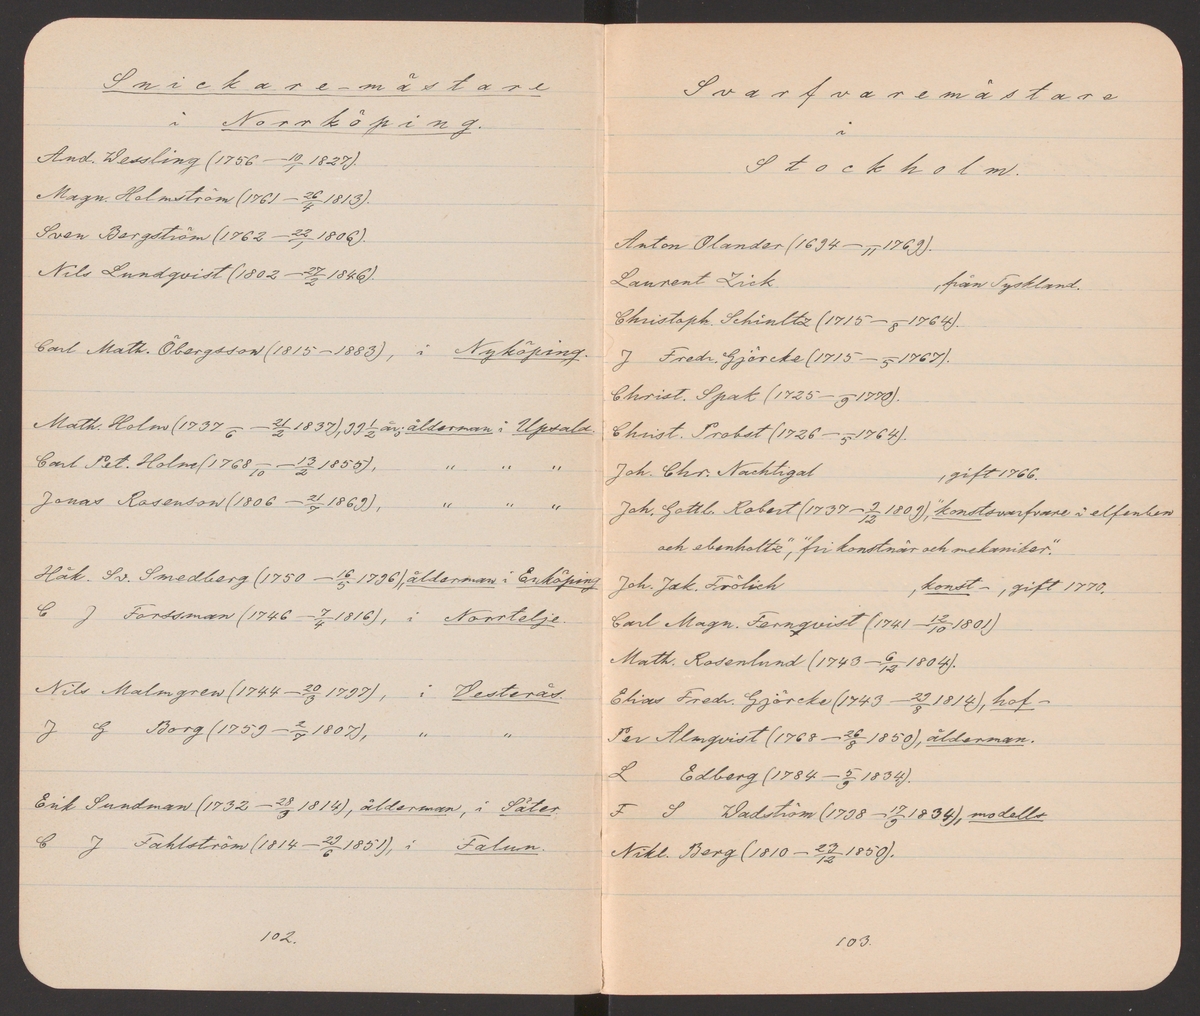 Snickare-mästare
i Norrköping.
And. Wessling (1756 — 19/1 1827).
Magn. Holmström (1761 — 26/4 1813).
Sven Bergström (1762 — 22/1 1806).
Nils Lundqvist (1802 — 27/2 1846).
Carl Math. Öbergsson (1815 — 1883), i Nyköping.
Math. Holm (1737 /6 — 21/2 1837), 99 1/2 år; ålderman i Upsala.
Carl Pet. Holm (1768 /10 — 13/2 1855), " " "
Jonas Rosenson (1806 — 21/7 1869), " " "
Håk. Sv. Smedberg (1750 — 16/5 1796), ålderman i Enköping
C J Forssman (1746 — 7/4 1816), i Norrtelje.
Nils Malmgren (1744 — 20/3 1797), i Westerås.
J G Borg (1759 — 2/7 1807), " "
Erik Sundman (1732 — 28/9 1814), ålderman, i Säter.
C J Fahlström (1814 — 29/6 1851), i Falun.
102.
Svarfvaremästare
i
Stockholm.
Anton Olander (1694 — /11 1769).
Laurent Zick , från Tyskland.
Christoph. Schultz (1715 — /8 1764).
J Fredr. Gjörcke (1715 — /5 1767).
Christ. Spak (1725 — /9 1770).
Christ. Probst (1726 — /5 1764).
Joh. Chr. Nachtigal , gift 1766.
Joh. Gottl. Robert (1737 — 9/12 1809), "konstsvarfvare i elfenben
och ebenholtz", "fri konstnär och mekaniker".
Joh. Jak. Frölich , konst- , gift 1770.
Carl Magn. Fernqvist (1741 — 12/10 1801)
Math. Rosenlund (1743 — 6/12 1804).
Elias Fredr. Gjörcke (1743 — 29/8 1814), hof-
Per Almqvist (1768 — 26/8 1850), ålderman.
L Edberg (1784 — 5/9 1834).
F S Wadström (1798 — 17/9 1834), modell-
Nikl. Berg (1810 — 23/12 1850).
103.